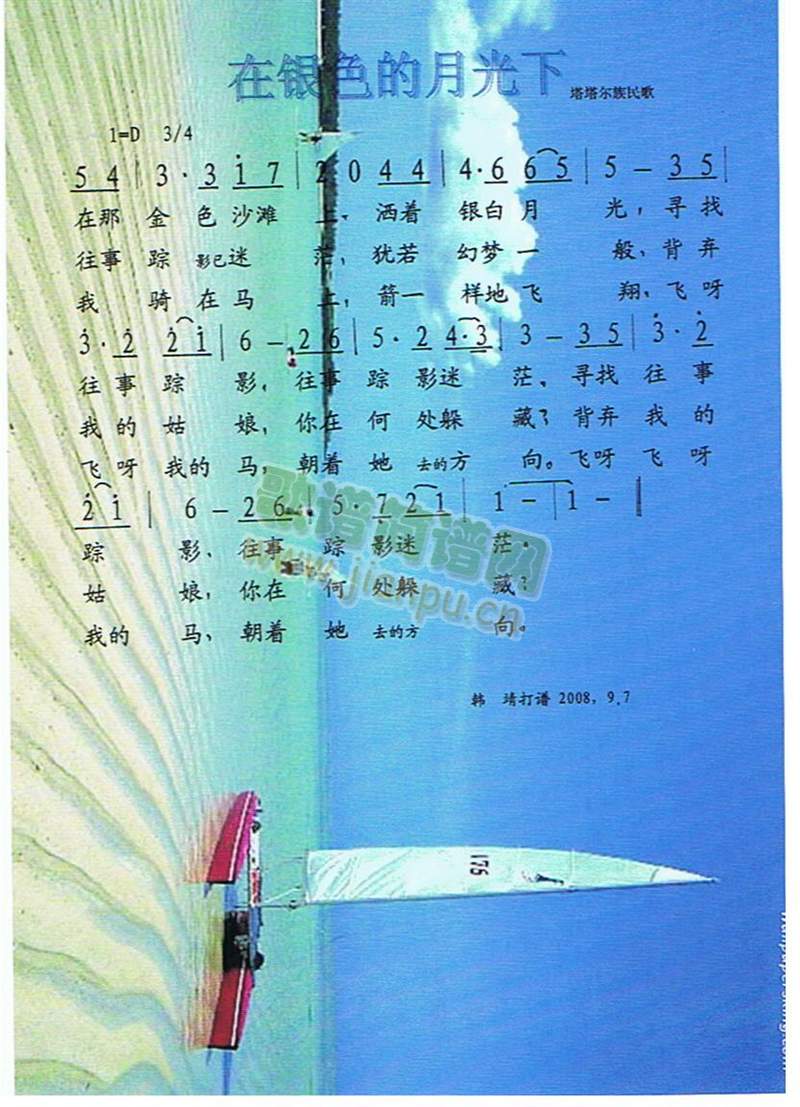 在银色的月光下 塔塔尔族民歌
1=D 3/4
5 4 | 3· 3 1 7 | 2 0 4 4 | 4· 6 6 5 | 5 – 3 5 |
在那 金 色 沙滩 上，洒着 银白 月 光，寻 找
往事 踪 影已迷 茫，犹若 幻梦 一 般，背弃
我 骑 在 马 上，箭一 样地飞 翔，飞呀
3· 2 2 1 | 6 – 2 6 | 5· 2 4·3 | 3 – 3 5 | 3· 2
往 事 踪 影，往事 踪 影迷 茫、寻找 往 事
我 的 姑 娘，你在 何 处躲 藏？背弃 我 的
飞 呀 我的 马，朝着 她 去的方 向。飞呀 飞 呀
2 1 | 6 – 2 6 | 5· 7 2 1 | 1 – | 1 – ‖
踪 影、往事 踪 影迷 茫·
姑 娘，你在 何 处躲 藏？
我的 马，朝着 她 去的方 向。
歌谱简谱网
www.jianpu.cn
韩 靖打谱 2008，9.7
175